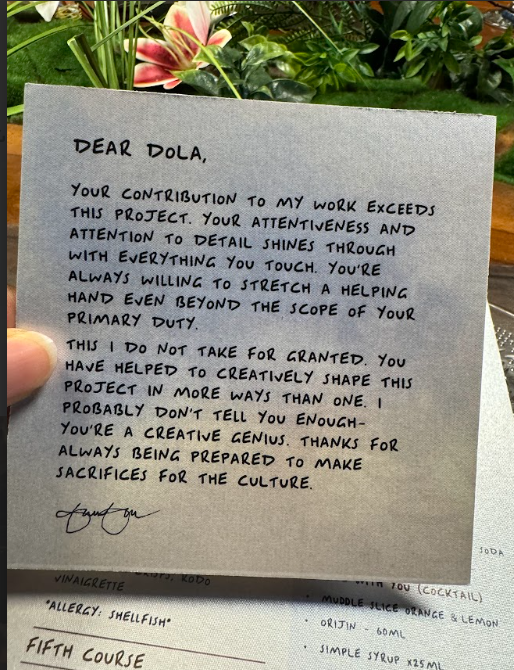 DEAR DOLA,
YOUR CONTRIBUTION TO MY WORK EXCEEDS
THIS PROJECT. YOUR ATTENTIVENESS AND
ATTENTION TO DETAIL SHINES THROUGH
WITH EVERYTHING YOU TOUCH. YOU'RE
ALWAYS WILLING TO STRETCH A HELPING
HAND EVEN BEYOND THE SCOPE OF YOUR
PRIMARY DUTY.
THIS I DO NOT TAKE FOR GRANTED. YOU
HAVE HELPED TO CREATIVELY SHAPE THIS
PROJECT IN MORE WAYS THAN ONE. I
PROBABLY DON'T TELL YOU ENOUGH-
YOU'RE A CREATIVE GENIUS. THANKS FOR
ALWAYS BEING PREPARED TO MAKE
SACRIFICES FOR THE CULTURE.
KODO
VINAIGRETTE
*ALLERGY: SHELLFISH*
FIFTH COURSE
SODA
WITH YOU (COCKTAIL)
• MUDDLE SLICE ORANGE & LEMON
• ORIJIN - 60ML
• SIMPLE SYRUP X25ML